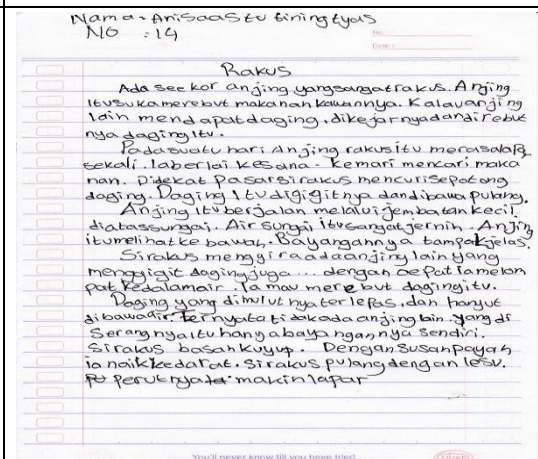 Nama: Anisaastutiningtyas
NO : 14
No:
Date:
Rakus
Ada seekor anjing yangsangatrakus. Anjing
itusukamerebut makanan kawannya. Kalauanjing
lain mendapatdaging, dikejarnyadandirebut
nya dagingitu.
Padasuatu hari Anjing rakusitu merasalapar
sekali. Iaberlai kesana - kemari mencari maka
nan. Didekat Pasarsirakus mencurisepotong
daging. Daging Itudigigitnya dandibawapulang.
Anjing Ituberjalan melaluijembatankecil
diatassungai. Air sungai itusangatjernih. Anjing
itumelihatke bawah. Bayangannya tampakjelas.
Sirakus mengiraadaanjinglain yang
menggigit dagingjuga ... dengan cepat iamelom
pat kedalamair. Ia mau merebut dagingitu.
Daging yang dimulutnyaterlepas, dan hanyut
dibawaair. Ternyata tidakadaanjinglain. yang di
serangnyaitu hanyabayangannya sendiri.
Sirakus basahkuyup. Dengansusahpayah
ia naikkedarat. Sirakus pulangdengan lesu.
perutnya makinlapar
You'll never know till you have tried